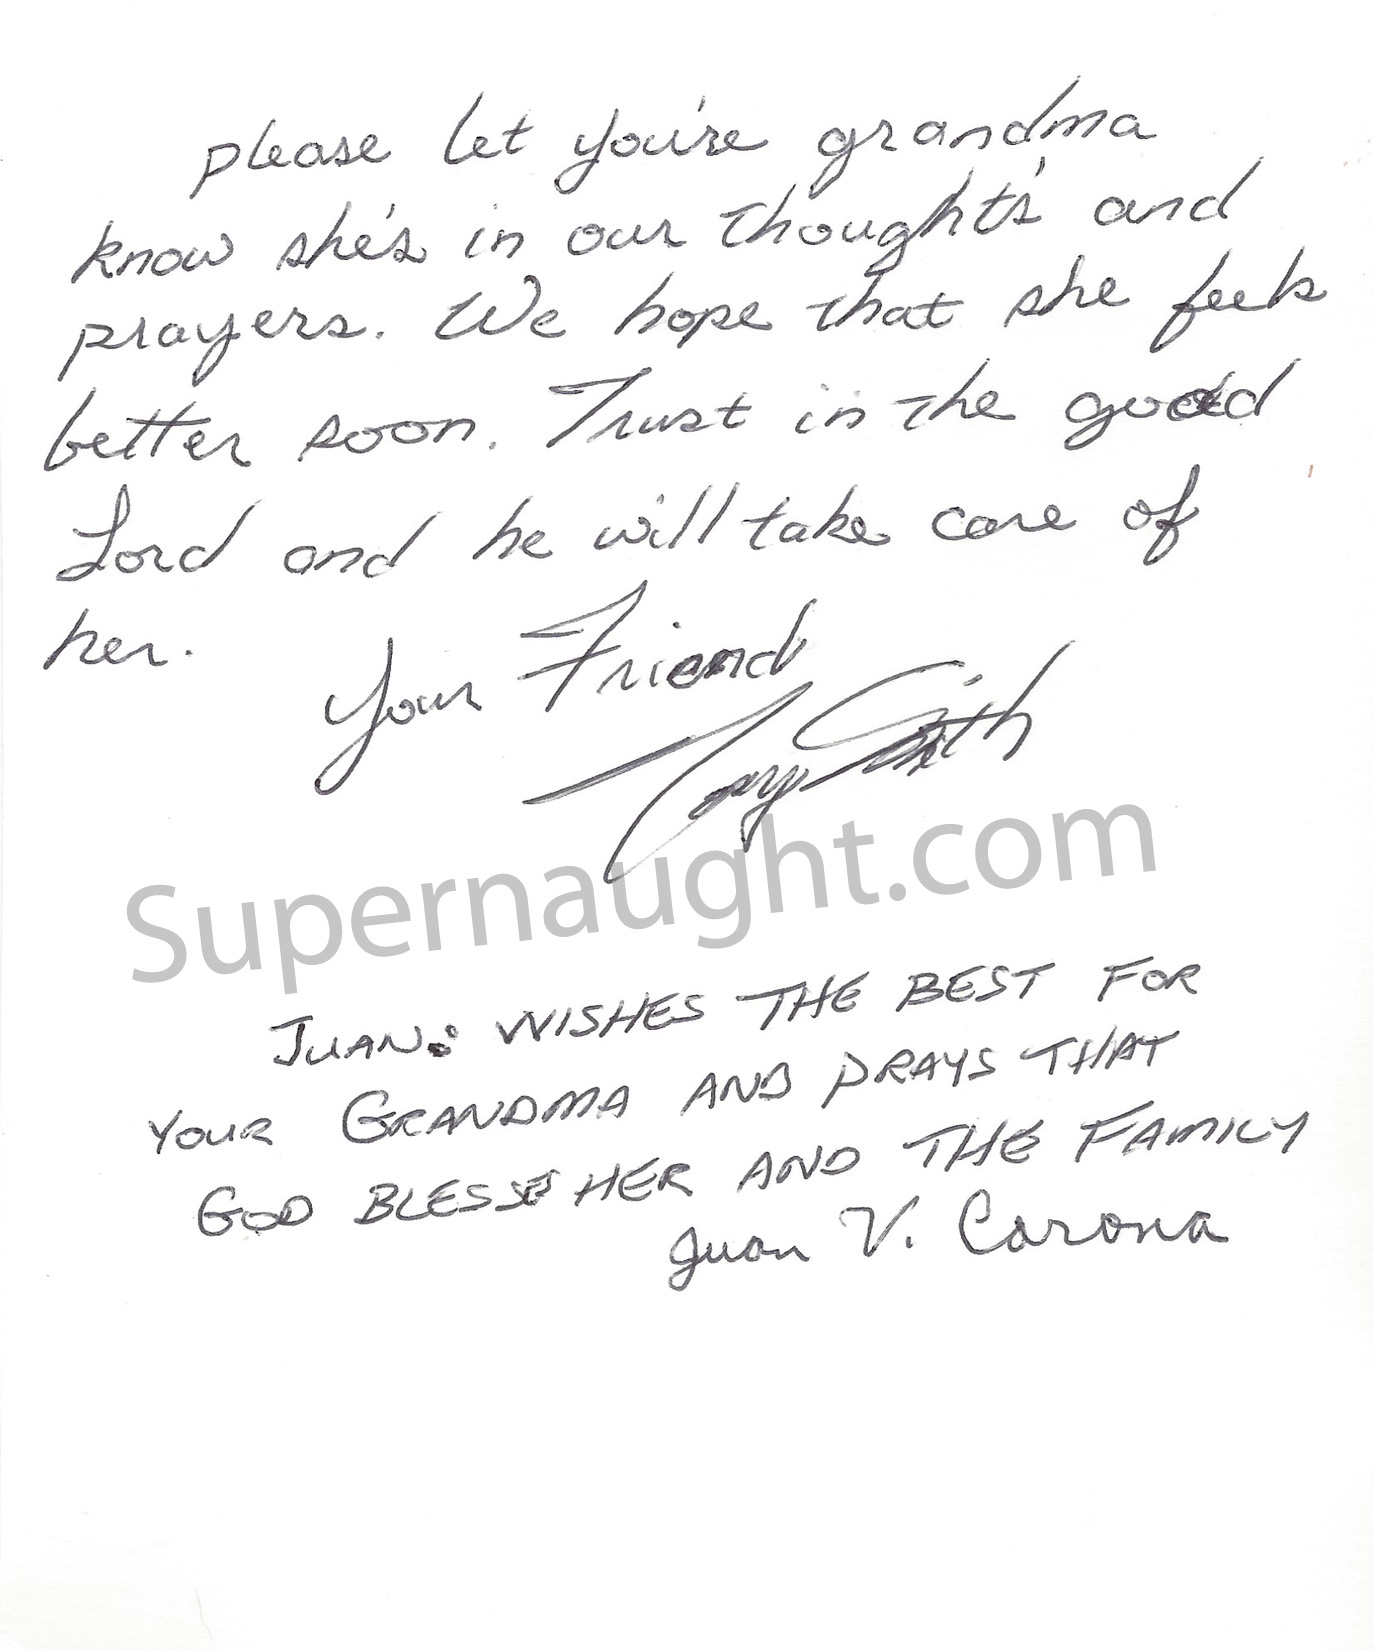 please let you're grandma
know she's in our thought's and
prayers. We hope that she feels
better soon. Trust in the good
Lord and he will take care of
her.
Your Friend
Smith
Supernaught.com
JUAN: WISHES THE BEST FOR
YOUR GRANDMA AND PRAYS THAT
GOD BLESS HER AND THE FAMILY
Juan V. Corona